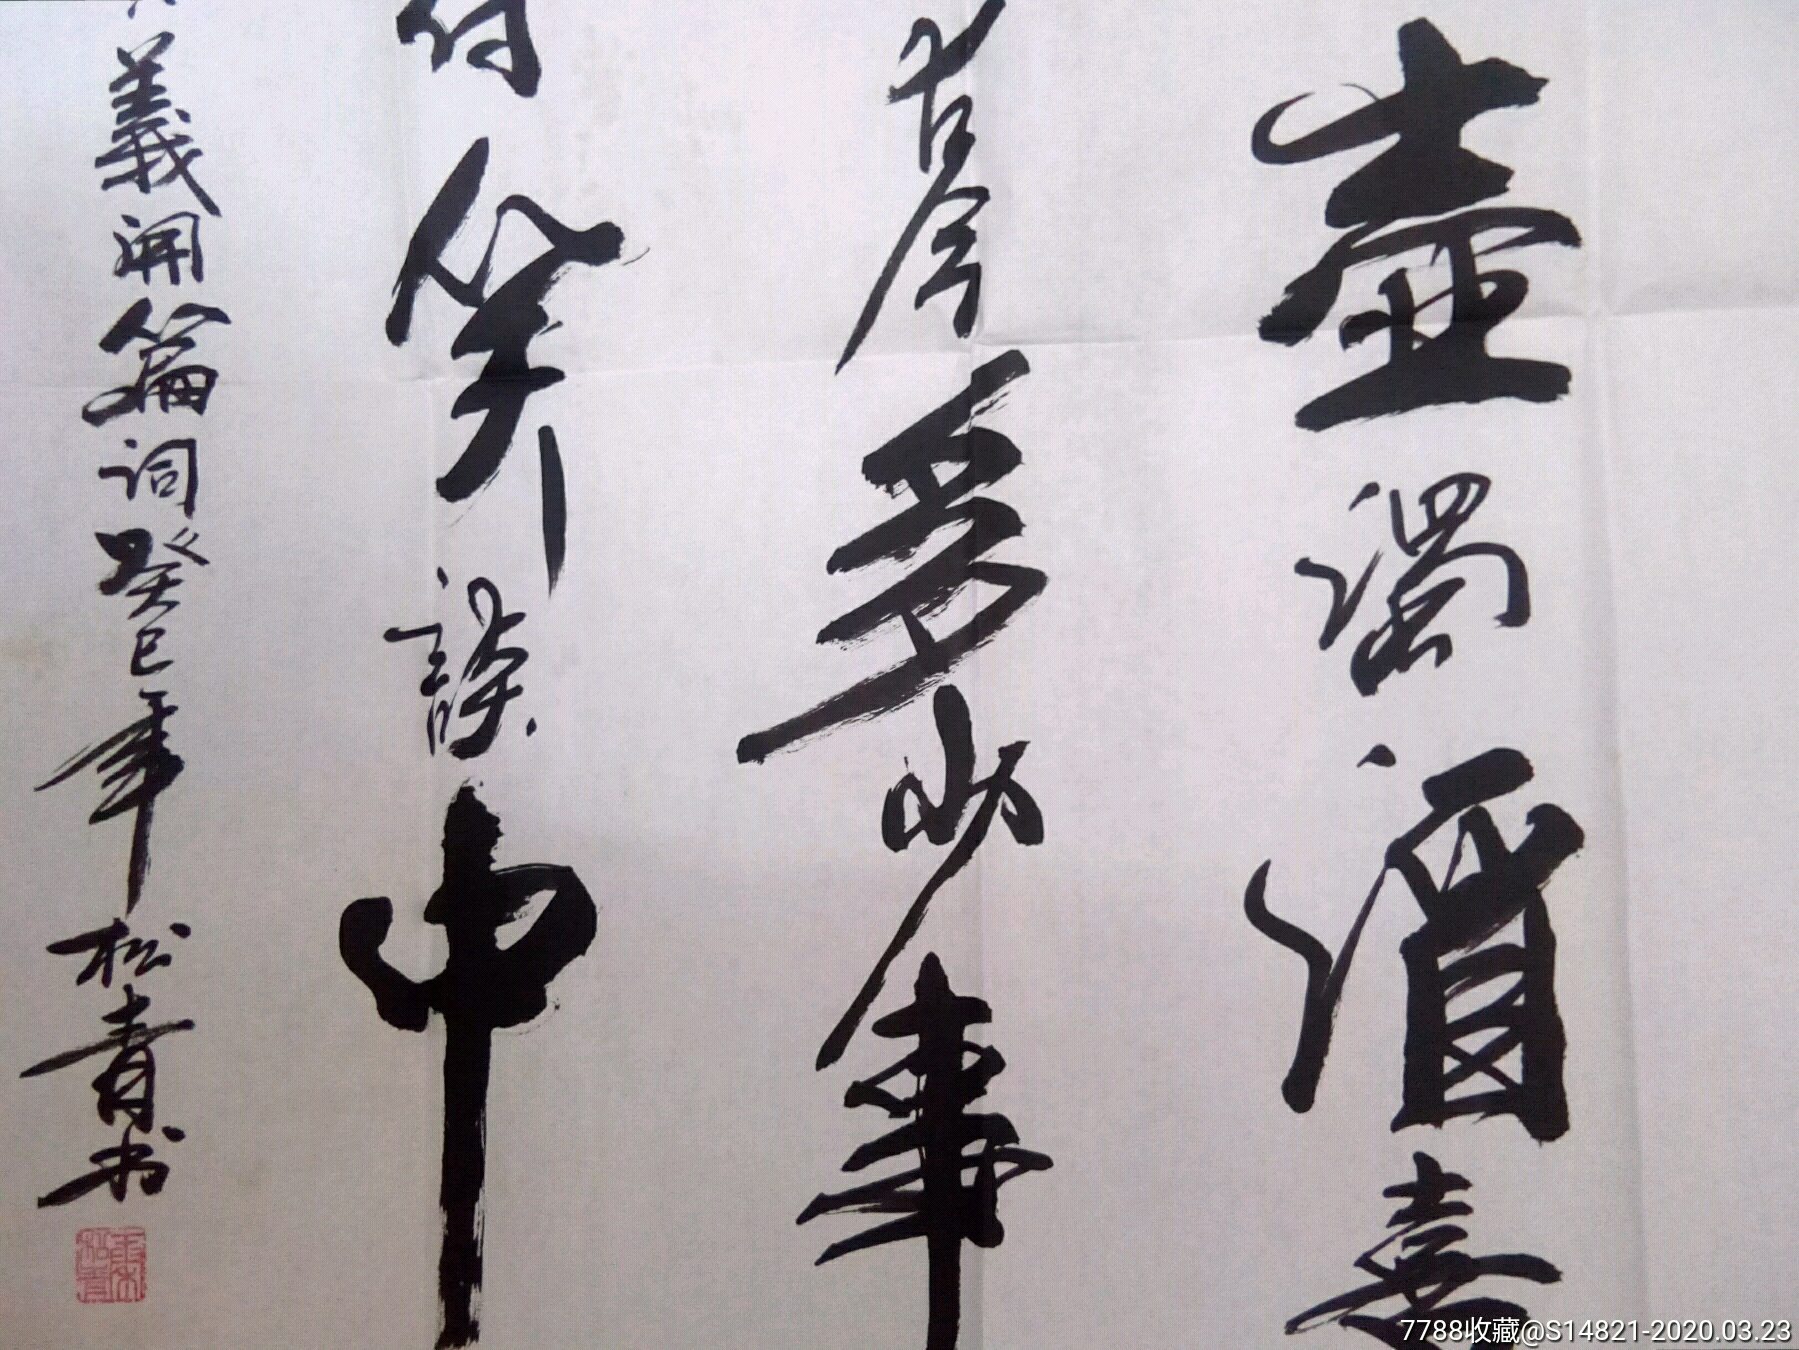 壶濁酒喜
古今多少事
付笑談中
義開篇词癸巳年松青书
7788收藏@S14821-2020.03.23